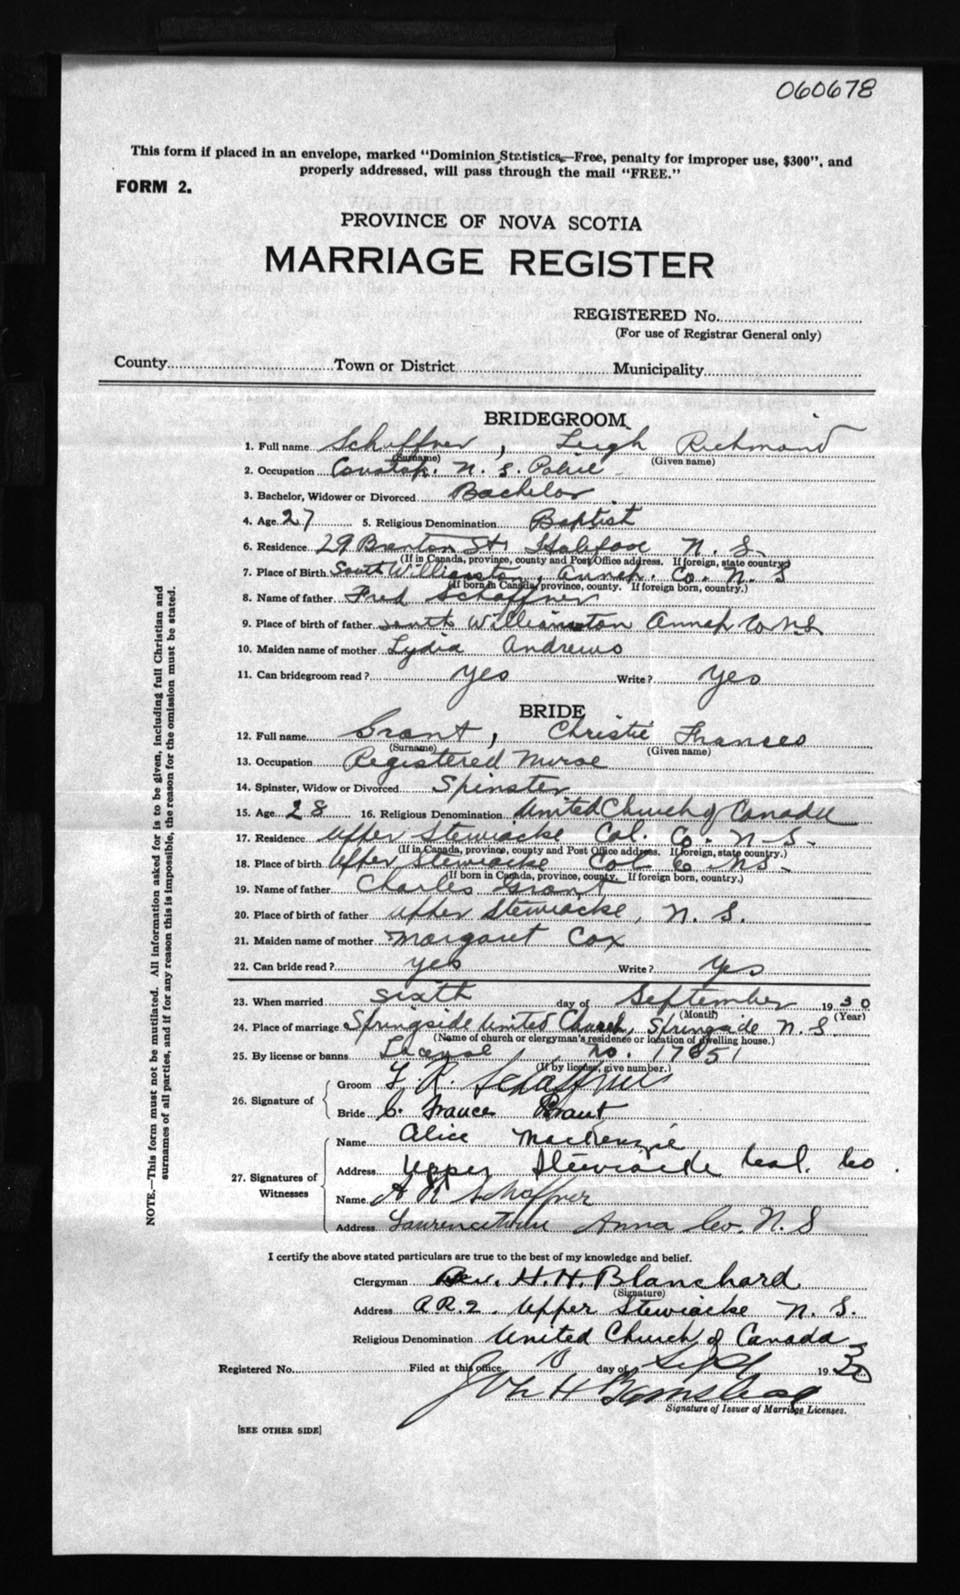 060678
This form if placed in an envelope, marked "Dominion Statistics—Free, penalty for improper use, $300", and
properly addressed, will pass through the mail "FREE."
FORM 2.
PROVINCE OF NOVA SCOTIA
MARRIAGE REGISTER
REGISTERED No.
(For use of Registrar General only)
County Town or District Municipality
BRIDEGROOM
1. Full name Schaffner, Leigh Richmond
(Surname) (Given name)
2. Occupation N. S. Police
3. Bachelor, Widower or Divorced Bachelor
4. Age 27 5. Religious Denomination Baptist
6. Residence 29 St. Halifax N. S.
(If in Canada, province, county and Post Office address. If foreign, state country)
7. Place of Birth South Williamston, Annap. Co. N. S
(If born in Canada, province, county. If foreign born, country.)
8. Name of father Fred Schaffner
9. Place of birth of father South Williamston Annap Co N.S.
10. Maiden name of mother Lydia Andrews
11. Can bridegroom read? yes Write? yes
BRIDE
12. Full name Grant, Christie Frances
(Surname) (Given name)
13. Occupation Registered Nurse
14. Spinster, Widow or Divorced Spinster
15. Age 28 16. Religious Denomination United Church of Canada
17. Residence Upper Stewiacke Col. Co N-S-
(If in Canada, province, county and Post Office address. If foreign, state country.)
18. Place of birth Upper Stewiacke Col Co NS-
(If born in Canada, province, county. If foreign born, country.)
19. Name of father Charles Grant
20. Place of birth of father Upper Stewiacke, N. S.
21. Maiden name of mother Margaret Cox
22. Can bride read? yes Write? yes
23. When married sixth day of September 1930
(Month) (Year)
24. Place of marriage Springside United Church, Springside N. S.
(Name of church or clergyman's residence or location of dwelling house.)
25. By license or banns License, No. 17851
(If by license, give number.)
26. Signature of Groom L. R. Schaffner
Bride C. Frances Grant
27. Signatures of Witnesses Name Alice MacKenzie
Address Upper Stewiacke Col. Co.
Name A R Schaffner
Address Lawrencetown Anna Co. N. S
I certify the above stated particulars are true to the best of my knowledge and belief.
Clergyman Rev. H. H. Blanchard
(Signature)
Address R.R.2. Upper Stewiacke N. S.
Religious Denomination United Church of Canada
Registered No. Filed at this office 10 day of Sept 1930
John H
Signature of Issuer of Marriage Licenses.
[SEE OTHER SIDE]
NOTE.—This form must not be mutilated. All information asked for is to be given, including full Christian and
surnames of all parties, and if for any reason this is impossible, the reason for the omission must be stated.